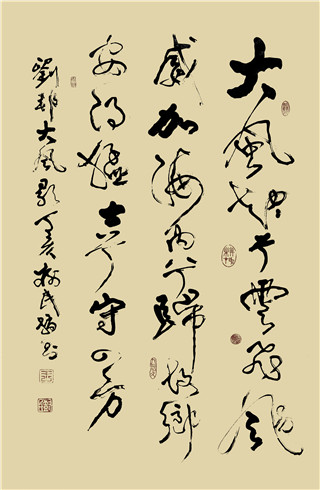 大風起兮雲飛颺
威加海内兮歸故鄉
安得猛士兮守四方
劉邦大風歌丁亥